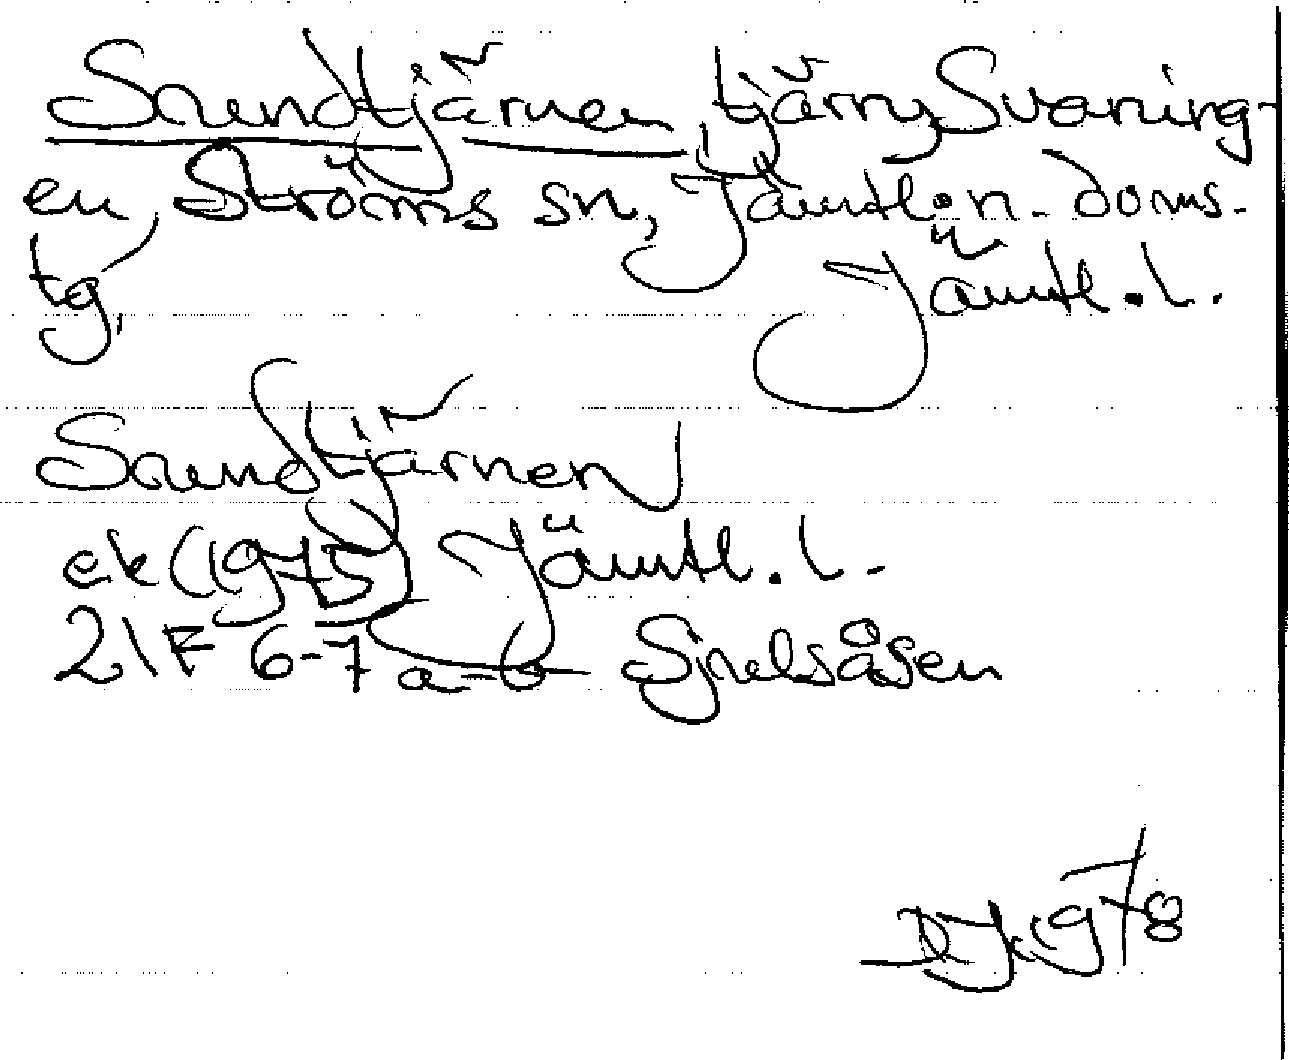 Sandtjärnen, tjärn, Svaning-
en, Ströms sn, Jämtl. n. doms.
tg,
Jämtl. l.
Sandtjärnen
ek (1975) Jämtl. l.
21F 6-7 a-b Sjulsåsen
1978